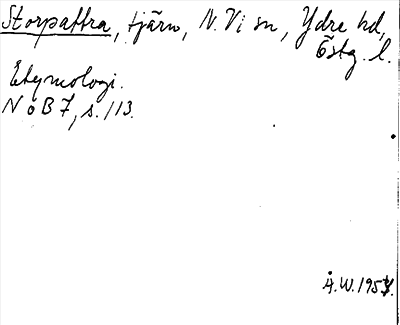 Storpattra, tjärn, N. Vi sn, Ydre hd,
Östg. l.
Etymologi.
N o B 7, s. 113.
Å.W. 195